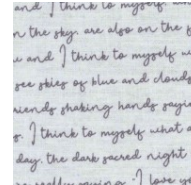 and I think to myself, an
n the sky, are also on the f
u and I think to myself w
see skies of blue and clouds
riends shaking hands sayi
s. I think to myself what a
day, the dark sacred night
really saying I love yo